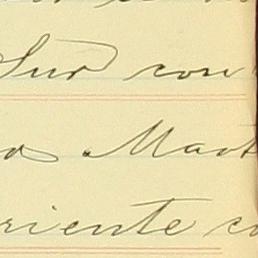 Sur con
Mart
riente co